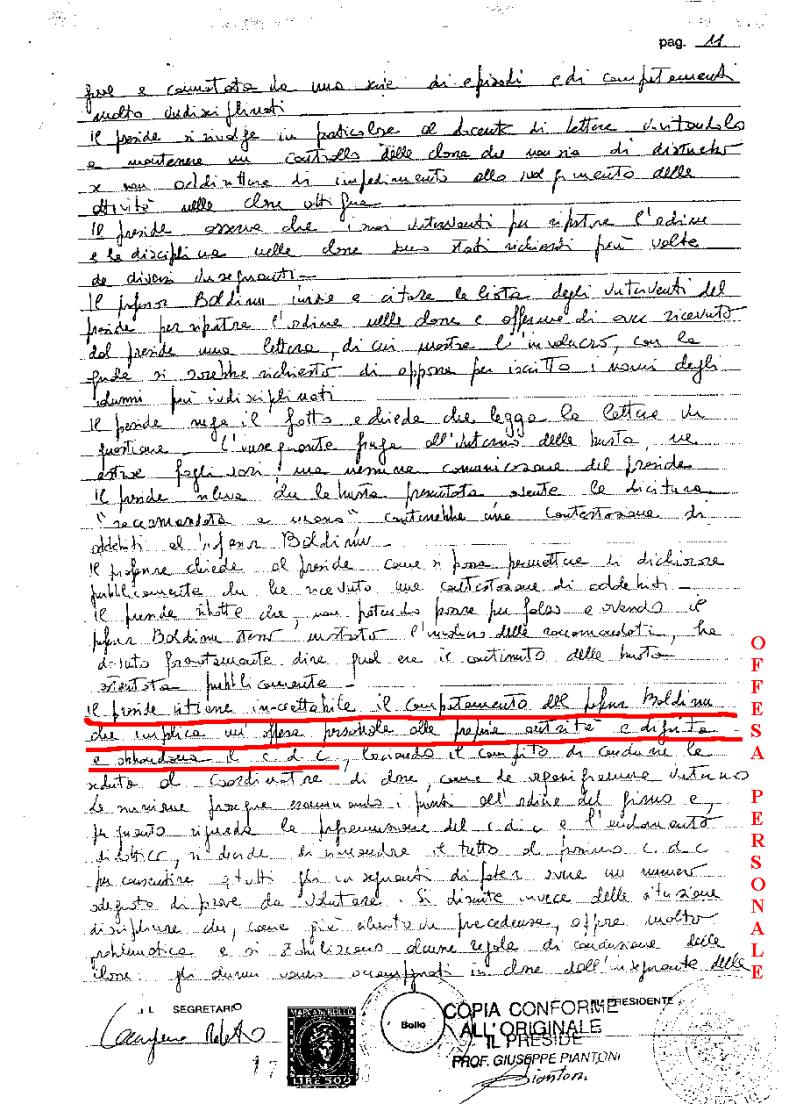 pag. 11
quale è connotata da una serie di episodi e di comportamenti
molto indisciplinati
Il preside si rivolge in particolare al docente di lettere invitandolo
a mantenere un controllo della classe che non sia di disturbo
se non addirittura di impedimento allo svolgimento delle
attività nelle classi attigue.
Il preside osserva che i suoi interventi per riportare l'ordine
e la disciplina nelle classi sono stati richiesti più volte
da diversi insegnanti.
Il professor Boldinu a citare la lista degli interventi del
preside per riportare l'ordine nelle classi e afferma di aver ricevuto
dal preside una lettera, di cui mostra l'involucro, con la
quale si sarebbe richiesto di apporre per iscritto i nomi degli
alunni più indisciplinati
Il preside nega il fatto e chiede che legga la lettera in
questione. L'insegnante fruga all'interno della busta, ne
estrae fogli vari, ma nessuna comunicazione del preside
Il preside rileva che la busta presentata avente la dicitura
"raccomandata a mano" conterrebbe una contestazione di
addebiti al professor Boldinu.
Il professore chiede al preside come si possa permettere di dichiarare
pubblicamente che ha ricevuto una contestazione di addebiti.
Il preside ribatte che, non potendo passare per falso e avendo il
professor Boldinu stesso mostrato l'involucro della raccomandata, ha
dovuto prontamente dire qual era il contenuto della busta
pubblicamente.
Il preside ritiene inaccettabile il comportamento del professor Boldinu
che implica un'offesa personale alla propria autorità e dignità
e abbandona il c.d.c, lasciando il compito di condurre la
seduta al Coordinatore di classe, come da
La riunione prosegue esaminando i punti all'ordine del giorno e,
per quanto riguarda la programmazione del c.d.c e l'andamento
didattico, si decide di rimandare il tutto al prossimo c.d.c
per consentire a tutti gli insegnanti di poter avere un numero
adeguato di prove da valutare. Si discute invece della situazione
disciplinare che, come già chiarito in precedenza, appare molto
problematica e si stabiliscono alcune regole di conduzione della
classe: gli alunni vanno accompagnati in classe dall'insegnante della
OFFESA PERSONALE
IL SEGRETARIO
MARCA DA BOLLO
LIRE 500
Bollo
IL PRESIDENTE
COPIA CONFORME
ALL'ORIGINALE
IL PRESIDE
PROF. GIUSEPPE PIANTONI
Piantoni